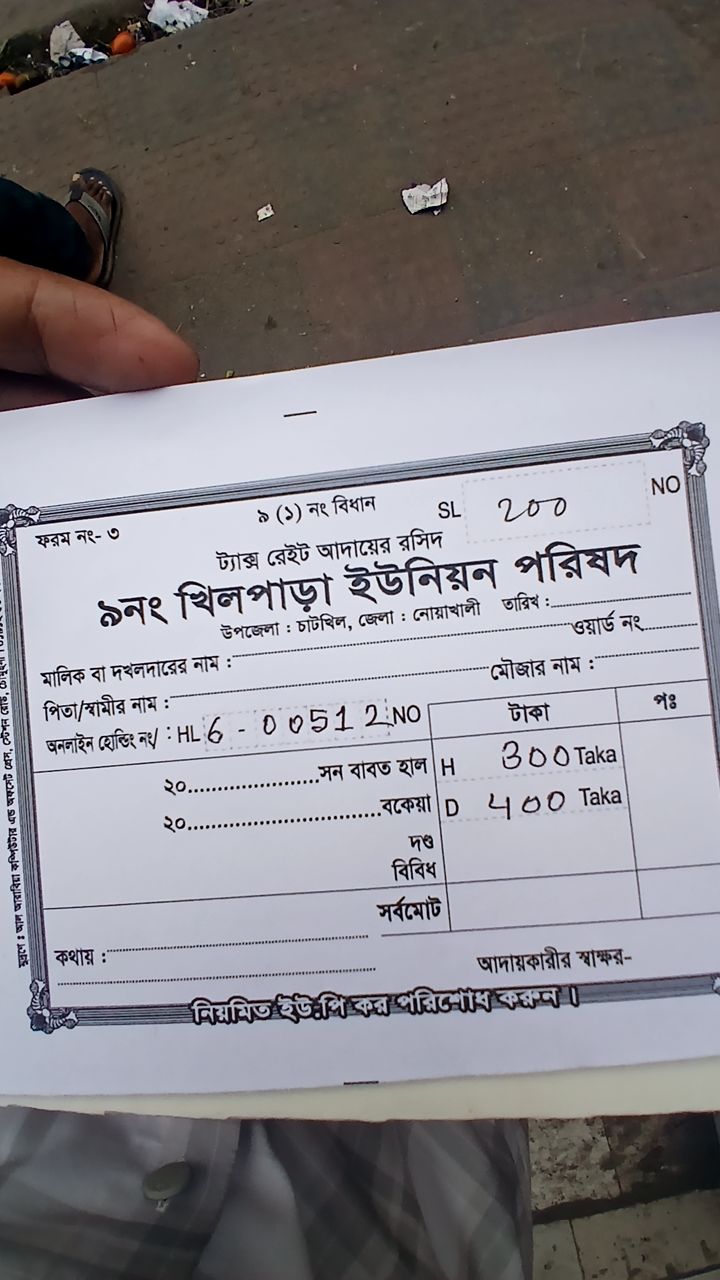 ফরম নং- ৩
৯ (১) নং বিধান
SL 200 NO
ট্যাক্স রেইট আদায়ের রসিদ
৯নং খিলপাড়া ইউনিয়ন পরিষদ
উপজেলা : চাটখিল, জেলা : নোয়াখালী তারিখ :
মালিক বা দখলদারের নাম : ওয়ার্ড নং
পিতা/স্বামীর নাম : মৌজার নাম :
অনলাইন হোল্ডিং নং/ : HL 6 - 00512 NO
টাকা পঃ
২০......................সন বাবত হাল H 300 Taka
২০................................বকেয়া D 400 Taka
দণ্ড
বিবিধ
সর্বমোট
কথায় :
আদায়কারীর স্বাক্ষর-
নিয়মিত ইউ:পি কর পরিশোধ করুন।